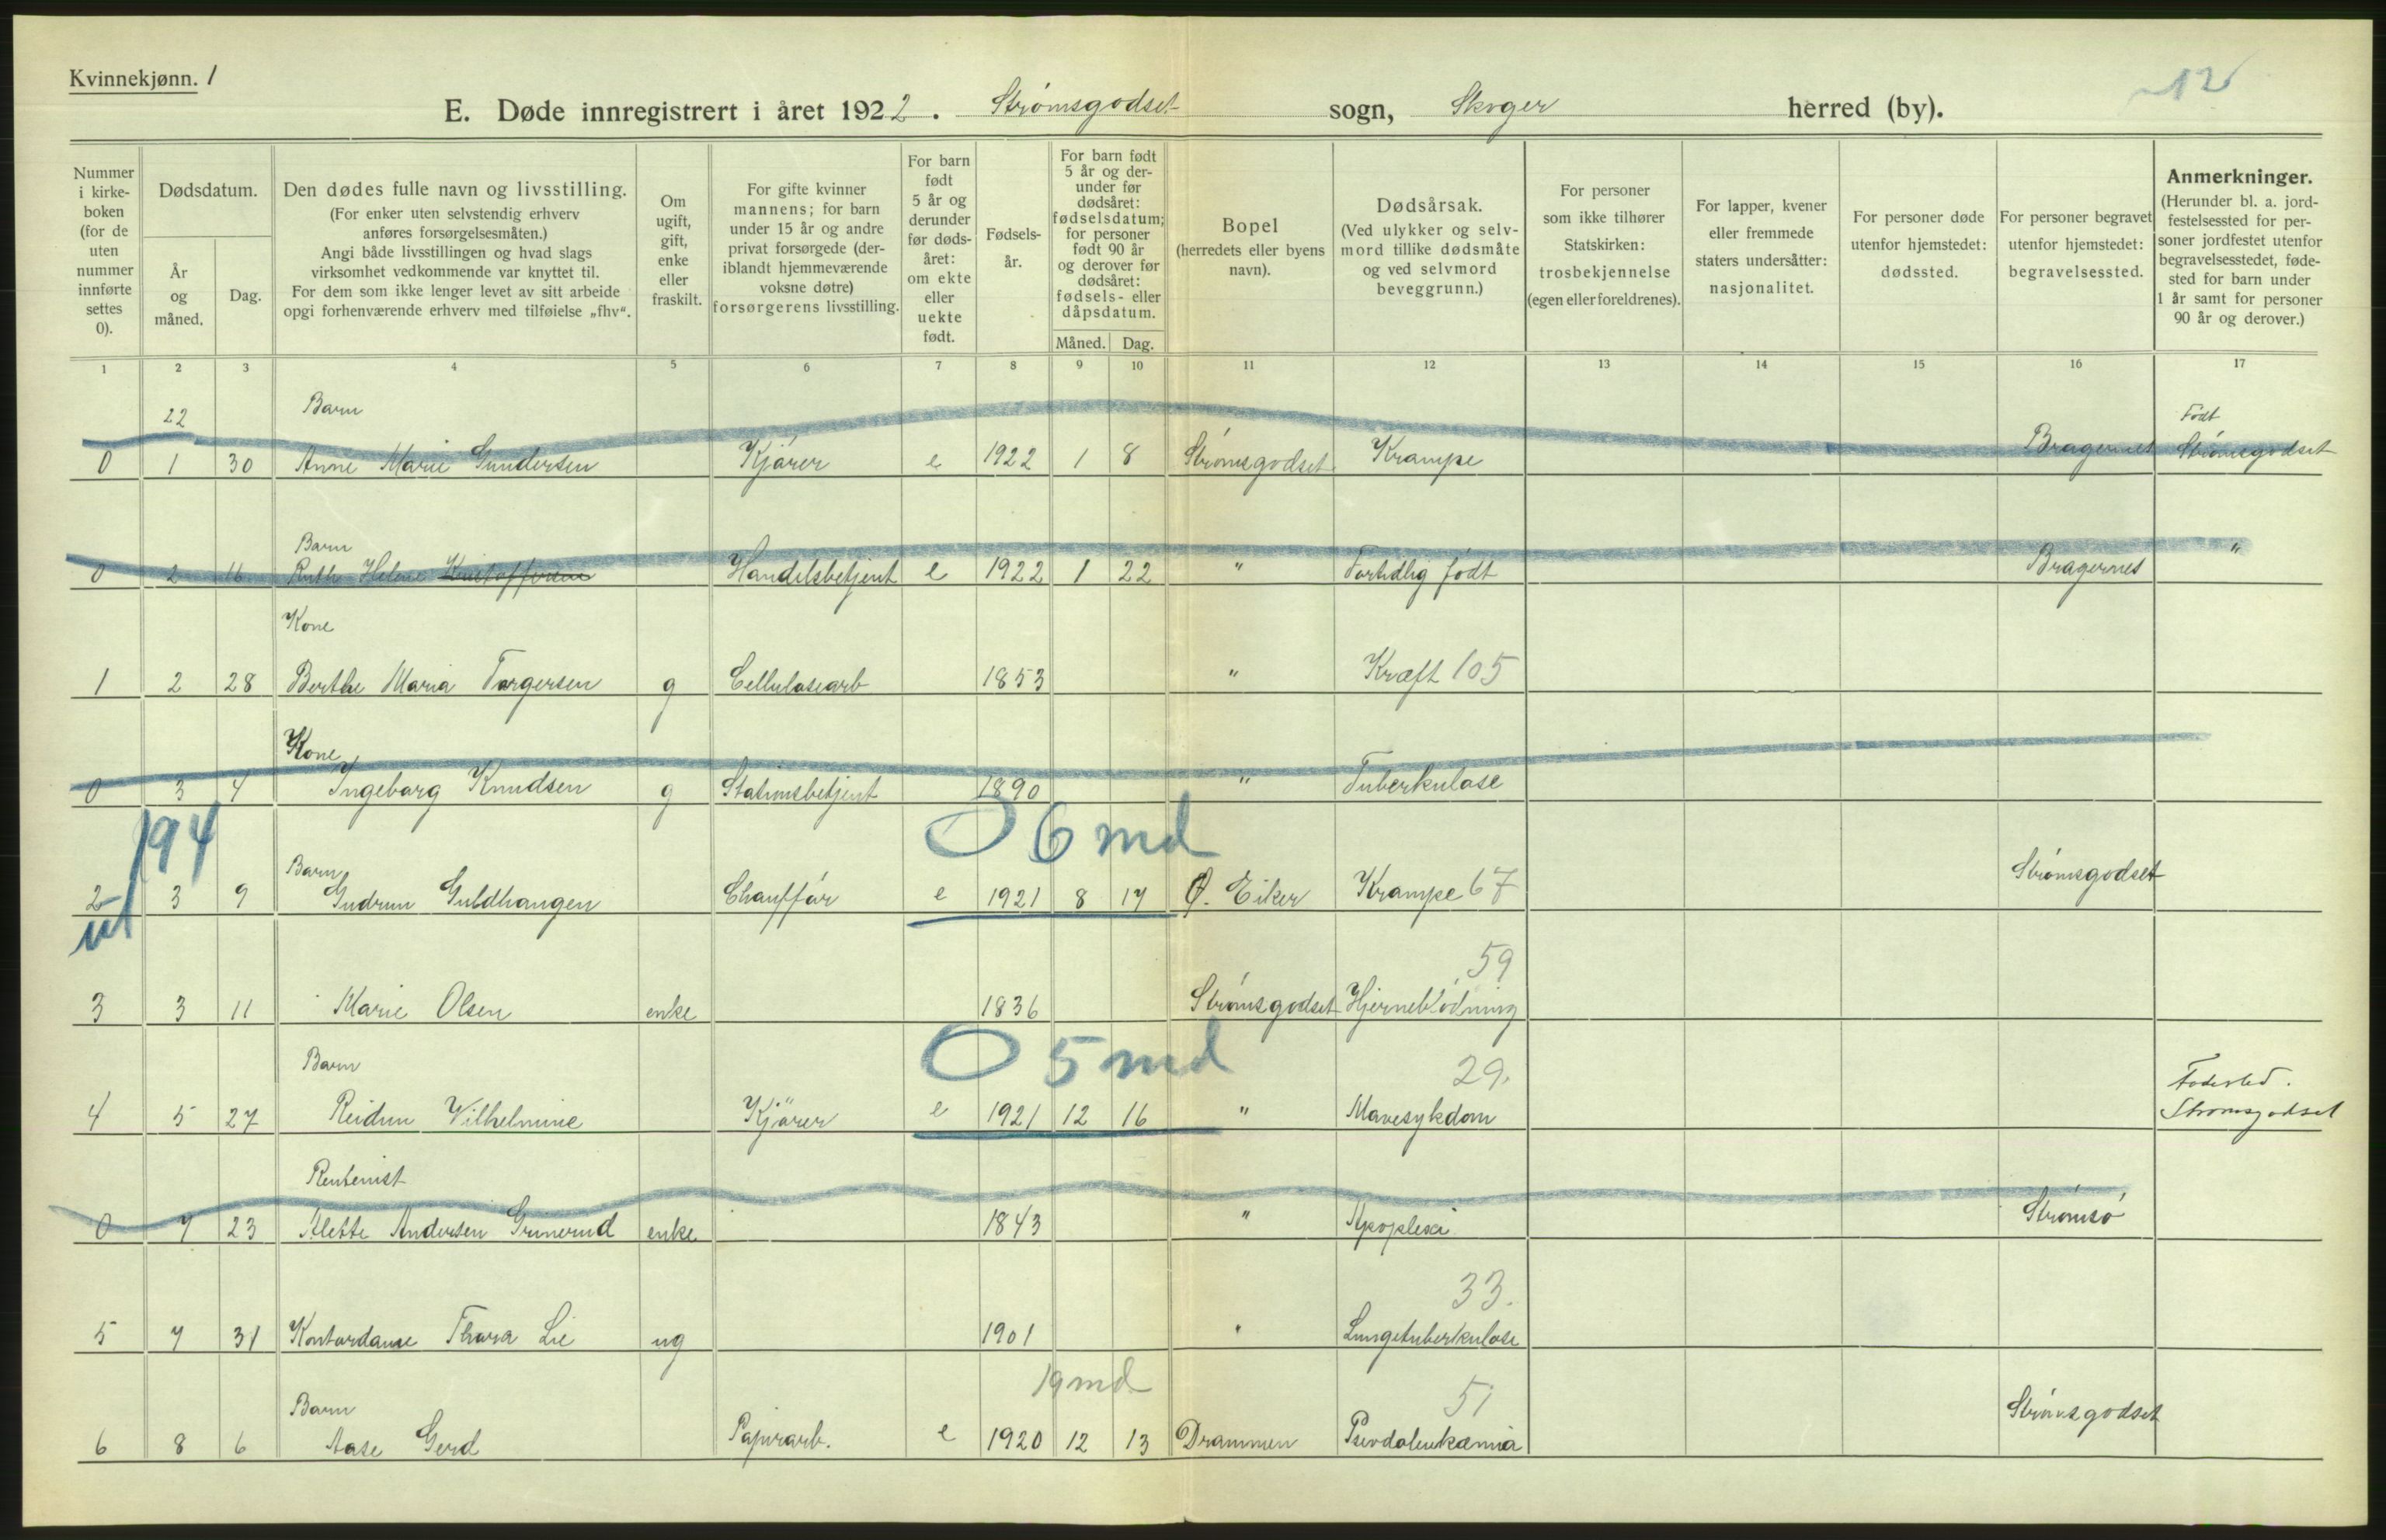 Kvinnekjønn. 1
12
E. Døde innregistrert i året 1922. Strømsgodset sogn, Skoger herred (by).
Nummer i kirke-boken (for de uten nummer innførte settes 0).
Dødsdatum.
År og måned.
Dag.
Den dødes fulle navn og livsstilling.
(For enker uten selvstendig erhverv anføres forsørgelsesmåten.)
Angi både livsstillingen og hvad slags virksomhet vedkommende var knyttet til.
For dem som ikke lenger levet av sitt arbeide opgi forhenværende erhverv med tilføielse „fhv“.
Om ugift, gift, enke eller fraskilt.
For gifte kvinner mannens; for barn under 15 år og andre privat forsørgede (der-iblandt hjemmeværende voksne døtre) forsørgerens livsstilling.
For barn født 5 år og derunder før døds-året: om ekte eller uekte født.
Fødsels-år.
For barn født 5 år og der-under før dødsåret: fødselsdatum; for personer født 90 år og derover før dødsåret: fødsels- eller dåpsdatum.
Måned. Dag.
Bopel (herredets eller byens navn).
Dødsårsak. (Ved ulykker og selv-mord tillike dødsmåte og ved selvmord beveggrunn.)
For personer som ikke tilhører Statskirken: trosbekjennelse (egen eller foreldrenes).
For lapper, kvener eller fremmede staters undersåtter: nasjonalitet.
For personer døde utenfor hjemstedet: dødssted.
For personer begravet utenfor hjemstedet: begravelsessted.
Anmerkninger. (Herunder bl. a. jord-festelsessted for per-soner jordfestet utenfor begravelsesstedet, føde-sted for barn under 1 år samt for personer 90 år og derover.)
1 2 3 4 5 6 7 8 9 10 11 12 13 14 15 16 17
22 Barn Født
0 1 30 Anne Marie Gundersen Kjører e 1922 1 8 Strømsgodset Krampe Bragernes Strømsgodset
Barn
0 2 16 Ruth Helene Kristoffersen Handelsbetjent e 1922 1 22 " Fortidlig født Bragernes "
Kone
1 2 28 Berthe Maria Torgersen g Cellulosearb 1853 " Kræft 105
Kone
0 3 4 Ingeborg Knudsen g Stationsbetjent 1890 " Tuberkulose
194 0 6 md
Barn
2 3 9 Gudrun Guldhaugen Chauffør e 1921 8 17 Ø. Eiker Krampe 67 Strømsgodset
ut
59
3 3 11 Marie Olsen enke 1836 Strømsgodset Hjerneblødning
0 5 md
Barn 29. Fødested.
4 5 27 Reidun Wilhelmine Kjører e 1921 12 16 " Mavesykdom Strømsgodset
Rentenist
0 7 23 Alette Andersen Grunerud enke 1843 " Apopleksi Strømsø
33.
5 7 31 Kontordame Thora Lie ug 1901 " Lungetuberkulose
19 md
Barn 51
6 8 6 Aase Gerd Papirarb. e 1920 12 13 Drammen Psevdoleukæmia Strømsgodset